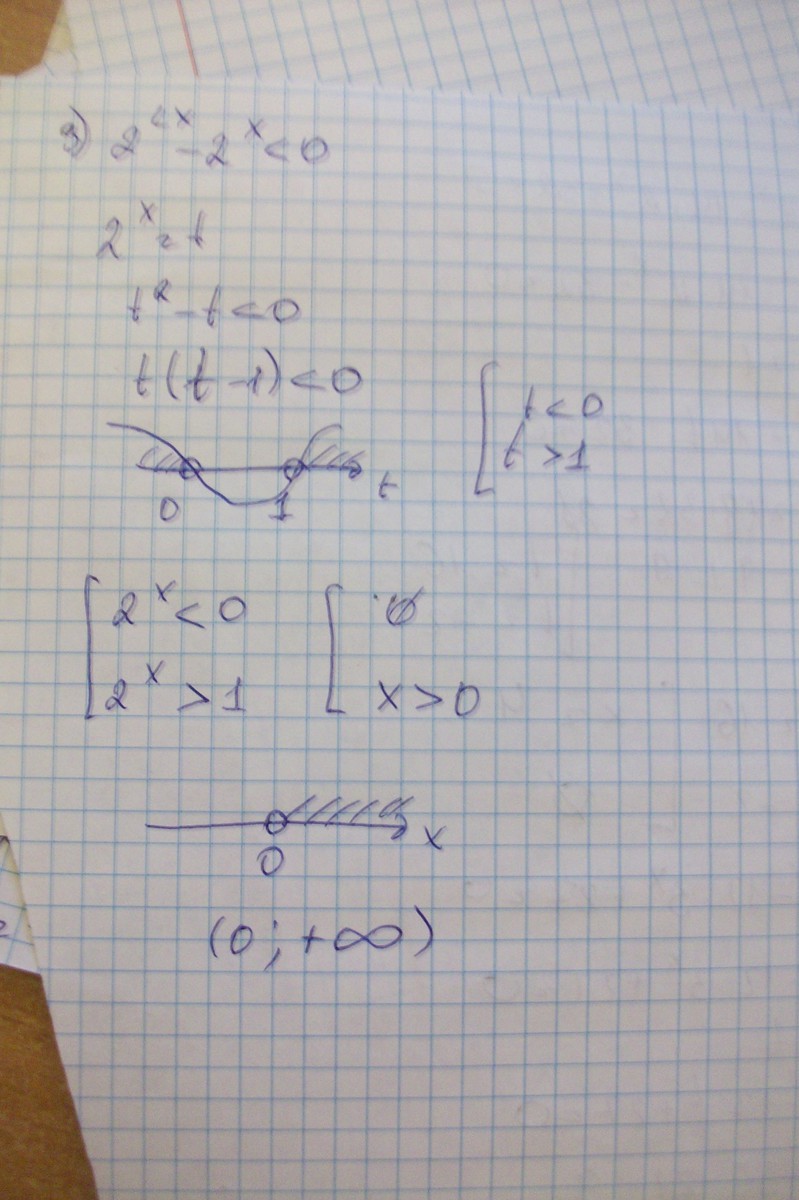 3) 2^{2x} - 2^x < 0
2^x = t
t² - t < 0
t(t - 1) < 0
[ t < 0
t > 1
0 1 t
[ 2^x < 0 [ ∅
2^x > 1 x > 0
0 x
(0; +∞)